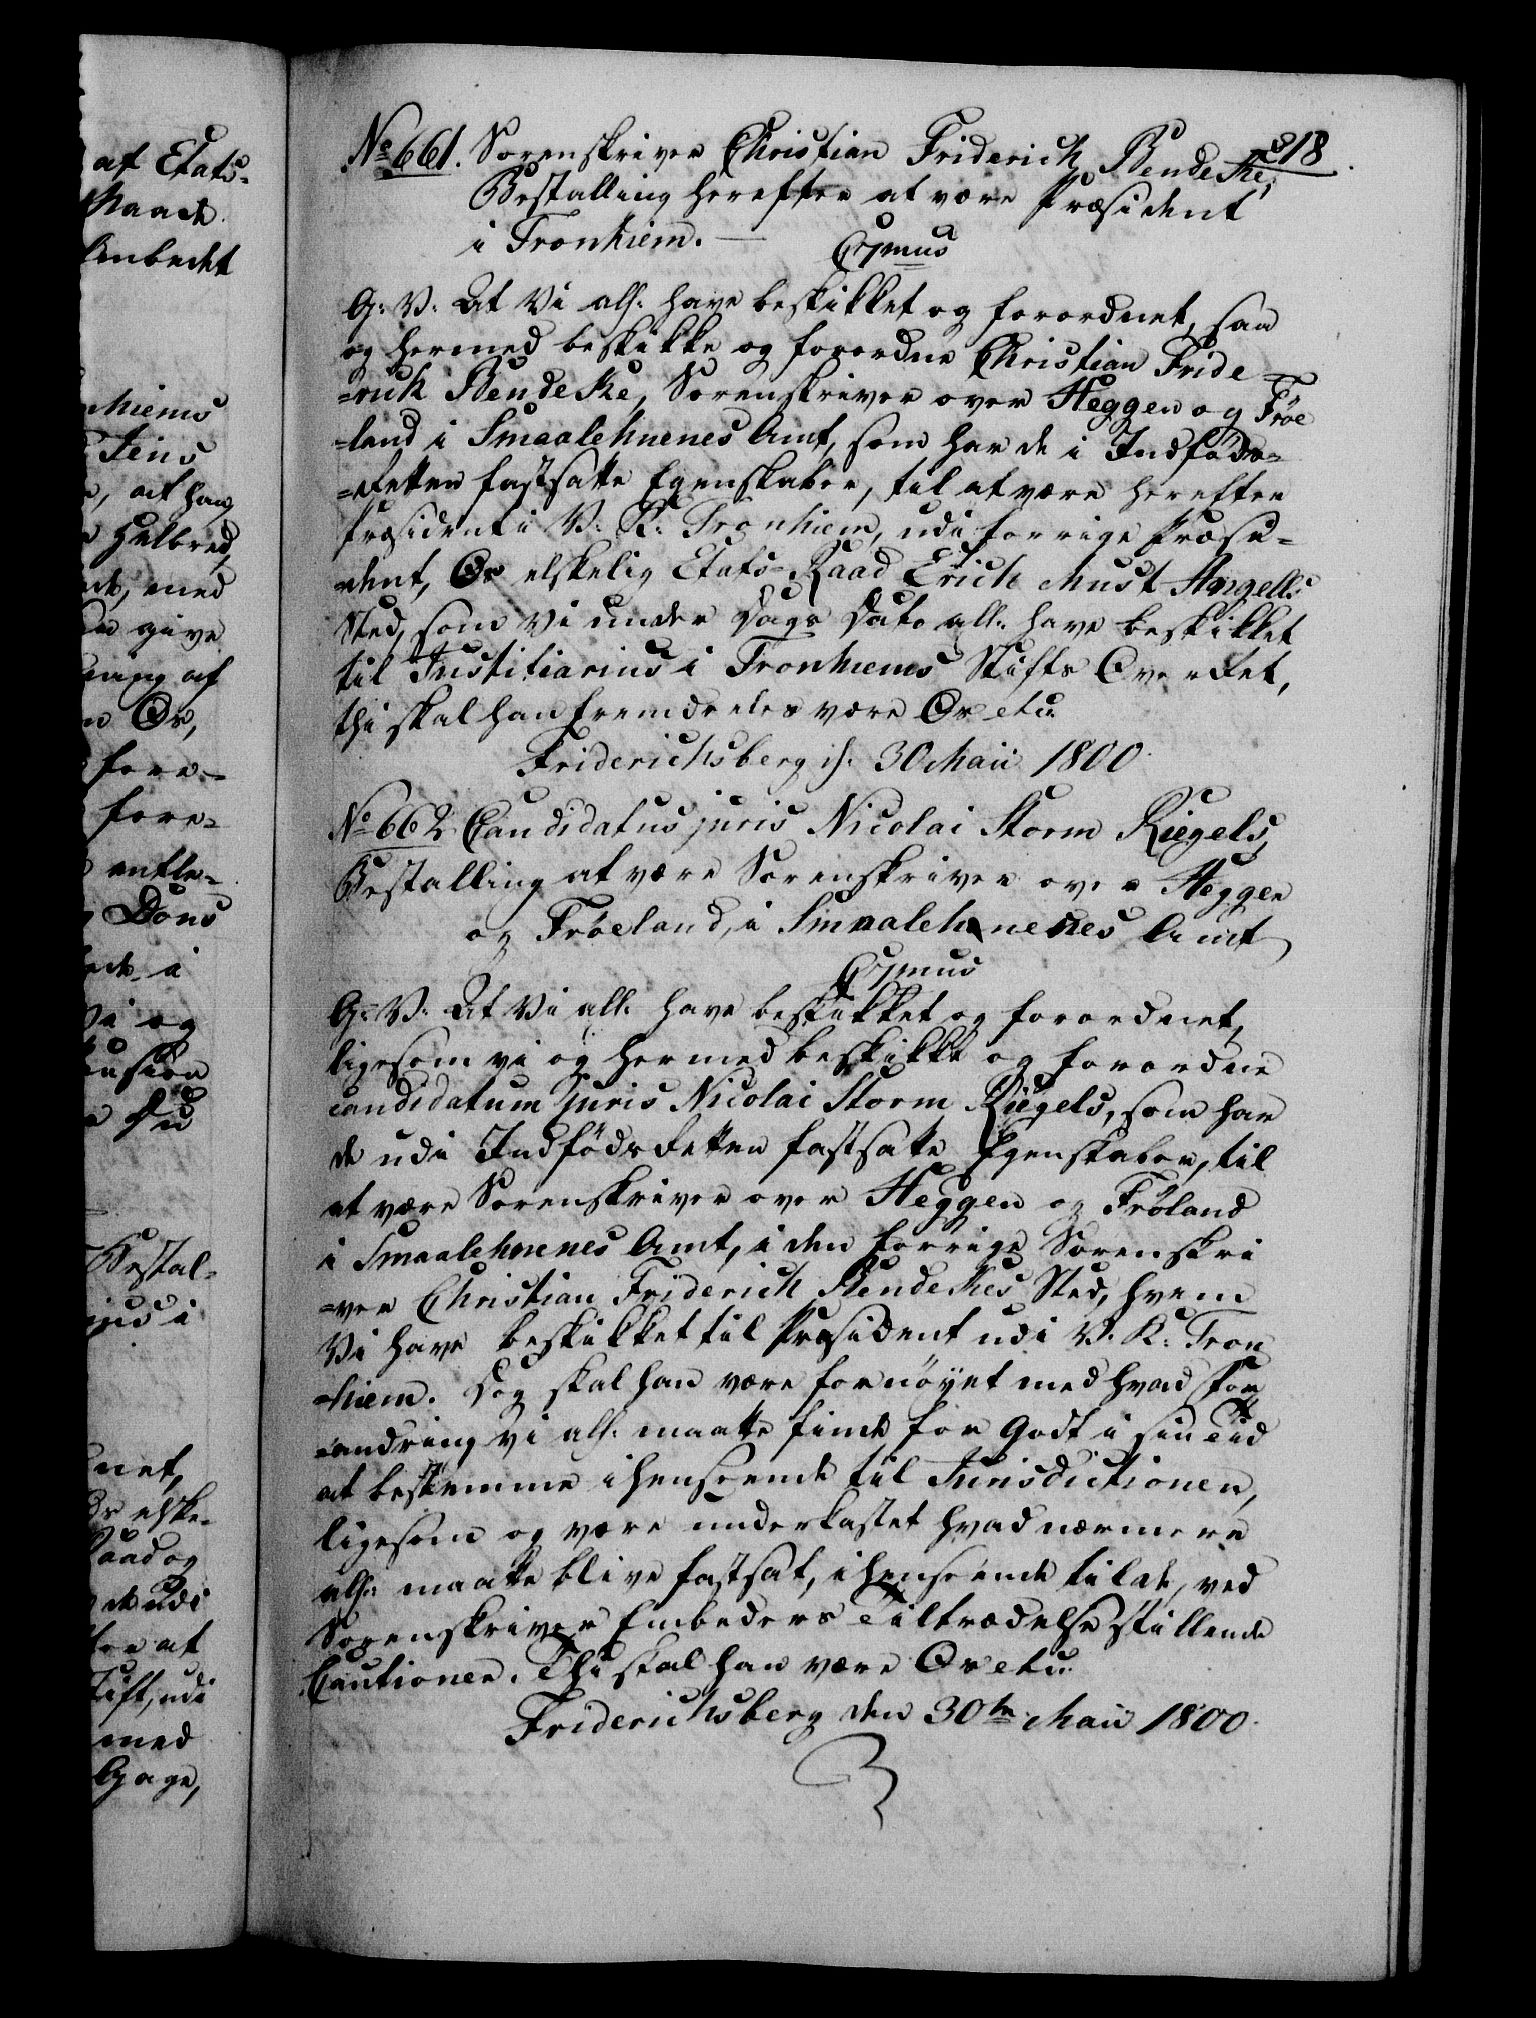 af Etats-
Maade
Embedet
nhiems
Jens
at han
Helbred,
med
give
ning af
Or,
fore-
fore-
entle-
Dons
i
Vi og
ension
Du
Bestal-
i
net,
elske-
Raad og
udi
at
Stift, udi
med
Gage,
218
No 661. Sorenskriver Christian Friderich Bendeke,
Bestalling herefter at være Præsident
i Tronhiem. —
C 7mus
G: V: At Vi alln: have beskikket og forordnet, saa
og hermed beskikke og forordne Christian Fride-
=rich Bendeke, Sorenskriver over Heggen og Frøe
=land i Smaalehnenes Amt, som har de i Indføds-
=Retten fastsatte Egenskaber, til at være herefter
Præsident i V: K: Tronhiem, udi forrige Præsi-
=dent, Os elskelig Etats-Raad Erich Must Angells
Sted, som Vi under Dags Dato alln: have beskikket
til Justitiarius i Tronhiems Stifts Overret,
thi skal han fremdeeles være Os etc:
Friderichsberg d: 30 Maii 1800.
No 662 Candidatus juris Nicolai Storm Riegels,
Bestalling at være Sorenskriver over Heggen
og Frøeland, i Smaalehnenes Amt
C 7mus
G: V: At Vi alln: have beskikket og forordnet,
ligesom vi og hermed beskikke og forordne
candidatum juris Nicolai Storm Riegels, som har
de udi Indfødsretten fastsatte Egenskaber, til
at være Sorenskriver over Heggen og Frøland
i Smaalehnenes Amt, i den forrige Sorenskri
=ver Christian Friderich Bendekes Sted, hvem
Vi have beskikket til Præsident udi V. K: Tron
=hiem. Dog skal han være fornøyet med hvad For
=andring vi alln: maatte finde for Godt i sin Tid
at bestemme i henseende til Jurisdictionen,
ligesom og være underkastet hvad nærmere
alln: maatte blive fastsat, i henseende til de, ved
Sorenskriver Embeders Tiltrædelse stillende
Cautioner. Thi skal han være Os etc:
Friderichsberg den 30te Maii 1800.